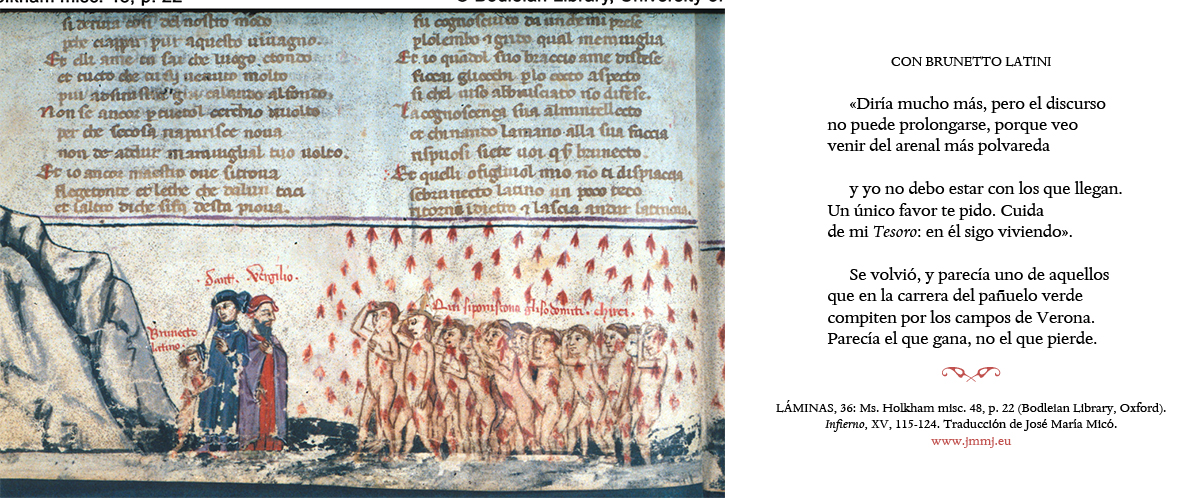 kham misc. 48, p. 22
© Bodleian Library, University of
del nostro modo
pur a questo vivagno.
Et elli a me tu sai che luogo e tondo
et tucto che tu venuto molto
pur a sinistra giu calando al fondo.
Non se ancor p tuctol cerchio volto
per che se cosa n aparisce nova
non de addur maraviglia al tuo volto.
Et io ancor maestro ove si trova
flegetonte et lethe che dalun taci
et laltro di che si fa desta piova.
fu cognosciuto da un che mi prese
p lo lembo et grido qual meraviglia
Et io quando l suo braccio a me distese
ficcai gliocchi p lo cocto aspecto
si chel viso abbrusciato no difese.
la cognoscença sua al mi intellecto
et chinando la mano alla sua faccia
rispuosi siete voi q brunecto.
Et quelli o figliuol mio no ti dispiaccia
se brunecto latino un poco teco
ritorna indietro et lascia andar la
Dante. Vergilio.
Brunecto
latino.
CON BRUNETTO LATINI
«Diría mucho más, pero el discurso
no puede prolongarse, porque veo
venir del arenal más polvareda
y yo no debo estar con los que llegan.
Un único favor te pido. Cuida
de mi Tesoro: en él sigo viviendo».
Se volvió, y parecía uno de aquellos
que en la carrera del pañuelo verde
compiten por los campos de Verona.
Parecía el que gana, no el que pierde.
LÁMINAS, 36: Ms. Holkham misc. 48, p. 22 (Bodleian Library, Oxford).
Infierno, XV, 115-124. Traducción de José María Micó.
www.jmmj.eu